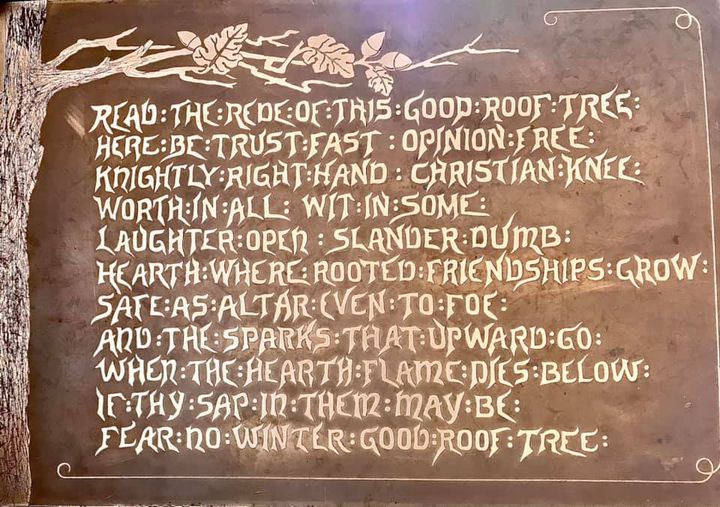 READ:THE:REDE:OF:THIS:GOOD:ROOF:TREE:
HERE:BE:TRUST:FAST:OPINION:FREE:
KNIGHTLY:RIGHT:HAND:CHRISTIAN:KNEE:
WORTH:IN:ALL:WIT:IN:SOME:
LAUGHTER:OPEN:SLANDER:DUMB:
HEARTH:WHERE:ROOTED:FRIENDSHIPS:GROW:
SAFE:AS:ALTAR:EVEN:TO:FOE:
AND:THE:SPARKS:THAT:UPWARD:GO:
WHEN:THE:HEARTH:FLAME:DIES:BELOW:
IF:THY:SAP:IN:THEM:MAY:BE:
FEAR:NO:WINTER:GOOD:ROOF:TREE: